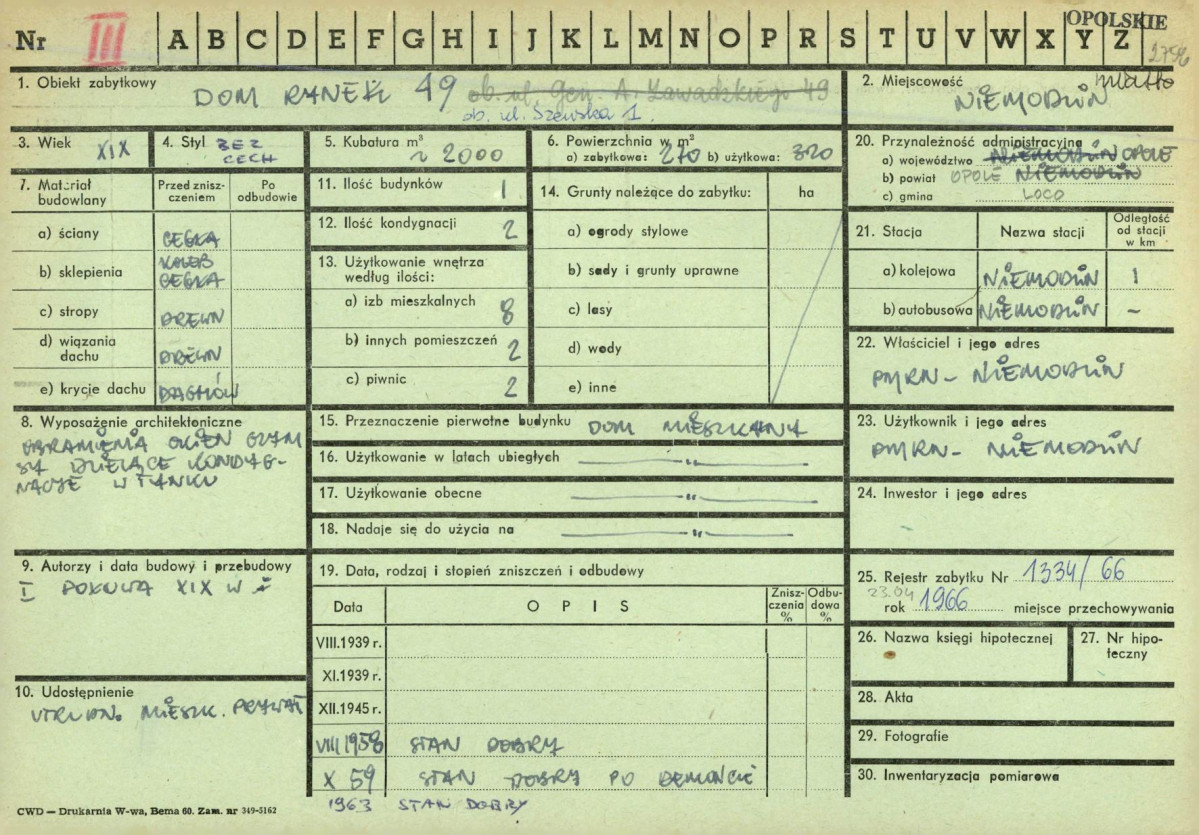 Nr III A B C D E F G H I J K L M N O P R S T U V W X Y Z
OPOLSKIE
1. Obiekt zabytkowy DOM RYNEK 49 ob. ul. Gen. A. Zawadzkiego 49
ob. ul. Szewska 1.
2. Miejscowość miasto
NIEMODLIN
3. Wiek XIX
4. Styl BEZ CECH
5. Kubatura m³ ~ 2000
6. Powierzchnia w m²
a) zabytkowa: 270 b) użytkowa: 320
20. Przynależność administracyjna
a) województwo NIEMODLIN OPOLE
b) powiat OPOLE NIEMODLIN
c) gmina LOCO
7. Materiał budowlany
Przed zniszczeniem
Po odbudowie
a) ściany CEGŁA
b) sklepienia KOLEB CEGŁA
c) stropy DREWN
d) wiązania dachu DREWN
e) krycie dachu DACHÓW
11. Ilość budynków 1
12. Ilość kondygnacji 2
13. Użytkowanie wnętrza według ilości:
a) izb mieszkalnych 8
b) innych pomieszczeń 2
c) piwnic 2
14. Grunty należące do zabytku: ha
a) ogrody stylowe
b) sady i grunty uprawne
c) lasy
d) wody
e) inne
21. Stacja
Nazwa stacji
Odległość od stacji w km
a) kolejowa NIEMODLIN 1
b) autobusowa NIEMODLIN –
22. Właściciel i jego adres
PMRN – NIEMODLIN
8. Wyposażenie architektoniczne
OBRAMIENIA OKIEN GZYM
SY DZIELĄCE KONDYG-
NACJE W TYNKU
15. Przeznaczenie pierwotne budynku DOM MIESZKALNY
16. Użytkowanie w latach ubiegłych —"—
17. Użytkowanie obecne —"—
18. Nadaje się do użycia na —"—
23. Użytkownik i jego adres
PMRN – NIEMODLIN
24. Inwestor i jego adres
9. Autorzy i data budowy i przebudowy
I POŁOWA XIX W
19. Data, rodzaj i stopień zniszczeń i odbudowy
Data
OPIS
Zniszczenia %
Odbudowa %
VIII.1939 r.
XI.1939 r.
XII.1945 r.
VIII 1958 STAN DOBRY
X 59 STAN DOBRY PO REMONCIE
1963 STAN DOBRY
25. Rejestr zabytku Nr 1334/66
23.04
rok 1966 miejsce przechowywania
26. Nazwa księgi hipotecznej
27. Nr hipoteczny
10. Udostępnienie
MIESZK. PRYWAT
28. Akta
29. Fotografie
30. Inwentaryzacja pomiarowa
CWD — Drukarnia W-wa, Bema 60. Zam. nr 349-5162